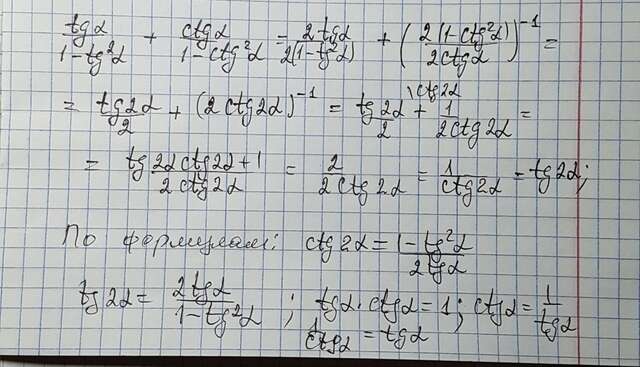 tgα/(1-tg²α) + ctgα/(1-ctg²α) = 2tgα/(2(1-tg²α)) + (2(1-ctg²α)/(2ctgα))⁻¹ =
= tg2α/2 + (2ctg2α)⁻¹ = tg2α/2 \ctg2α + 1/(2ctg2α) =
= (tg2α ctg2α+1)/(2ctg2α) = 2/(2ctg2α) = 1/(ctg2α) = tg2α;
По формулам: ctg2α = (1-tg²α)/(2tgα)
tg2α = 2tgα/(1-tg²α) ; tgα·ctgα = 1; ctgα = 1/tgα
1/ctgα = tgα